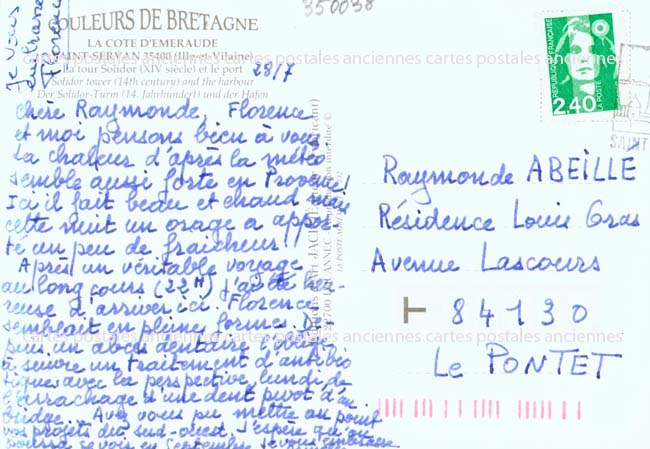 350038
COULEURS DE BRETAGNE
LA COTE D'EMERAUDE
SAINT-SERVAN 35400 (Ille-et-Vilaine)
La tour Solidor (XIV siècle) et le port
Solidor tower (14th century) and the harbour
Der Solidor-Turm (14. Jahrhundert) und der Hafen
28/7
Je vous
Florence
chère Raymonde, Florence
et moi pensons bien à vous
La chaleur d'après la météo
semble aussi forte en Provence!
Ici il fait beau et chaud mais
cette nuit un orage a appor-
té un peu de fraicheur!
Après un véritable voyage
au long cours (22H) j'ai été heu-
reuse d'arriver ici. Florence
semblait en pleine forme. De
puis un abcès dentaire l'oblige
à suivre un traitement d'antibio
tiques avec la perspective lundi de
l'arrachage d'une dent pivot d'un
bridge. Avez vous pu mettre au point
vos projets du sud-ouest. J'espère qu'on
pourra se voir en Septembre. Je vous
RÉPUBLIQUE FRANÇAISE
LA POSTE
2,40
SAINT
Raymonde ABEILLE
Résidence Louis Gras
Avenue Lascours
84130
Le PONTET
cartes postales anciennes cartes postales anciennes cartes postales anciennes
cartes postales anciennes cartes postales anciennes cartes postales anciennes